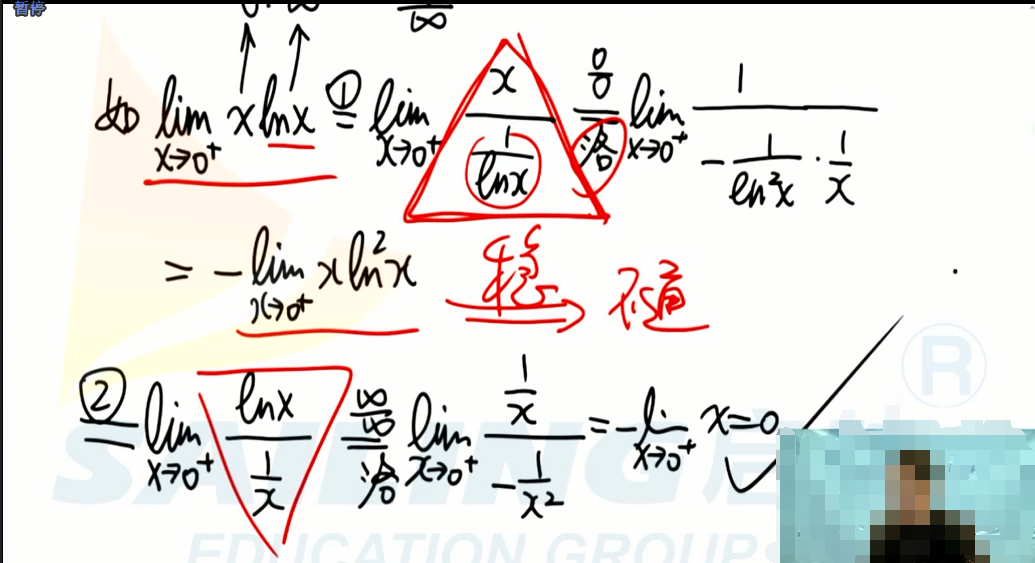 暂停
0 · ∞
1/∞
如 lim x→0⁺ x ln x ①= lim x→0⁺ x/(1/ln x) 0/0 洛 lim x→0⁺ 1/(-1/ln²x · 1/x)
= - lim x→0⁺ x ln²x 稳 ⇒ 不通
②= lim x→0⁺ ln x/(1/x) ∞/∞ = 洛 lim x→0⁺ (1/x)/(-1/x²) = - li x→0⁺ x = 0 ✓
®
EDUCATION GROUP